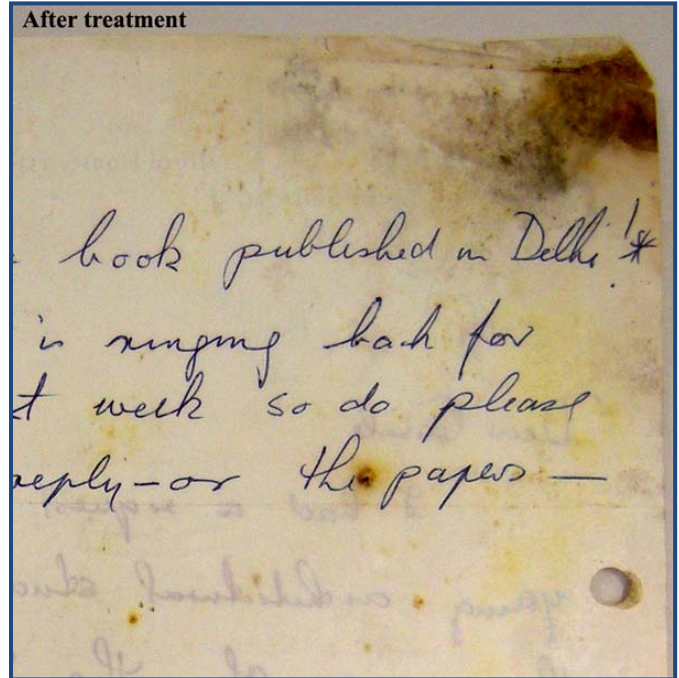 After treatment
book published in Delhi!*
is ringing back for
t week so do please
reply – or the papers —